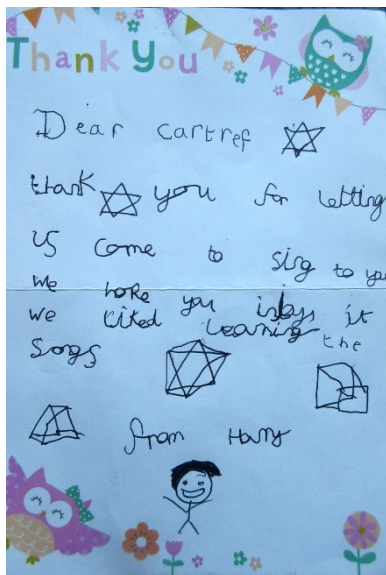 Thank You
Dear Cartref
thank you for letting
us come to sing to you
we hope you injoys it
we liked learning the
songs
from Harry